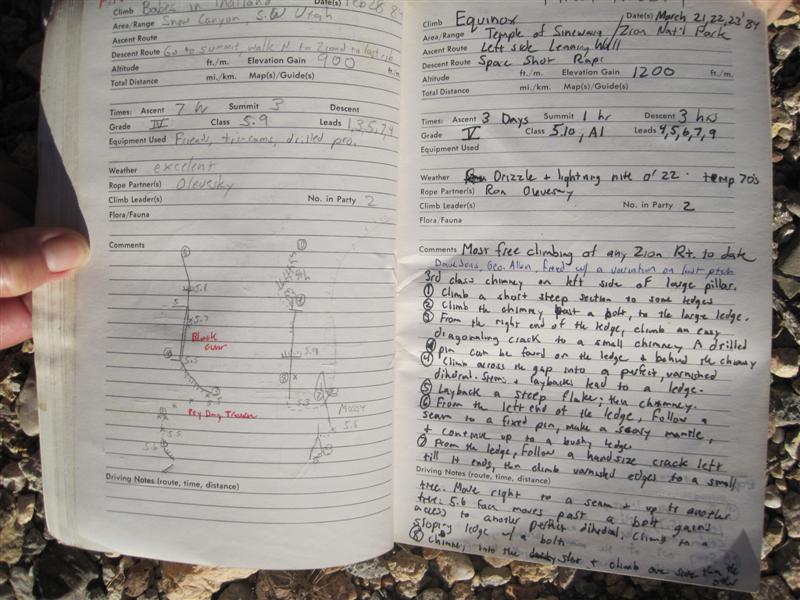 Climb Babes in Thailand Date(s) Feb 28 84
Area/Range Snow Canyon, S.W Utah
Ascent Route
Descent Route Go to summit, walk N to 2 rap to last rib
Altitude ft./m. Elevation Gain 900 ft./m
Total Distance mi./km. Map(s)/Guide(s)
Times: Ascent 7 hr Summit 3 Descent
Grade IV Class 5.9 Leads 1,3,5,7,9
Equipment Used Friends, tri-cams, drilled pro.
Weather excelent
Rope Partner(s) Olevesky
Climb Leader(s) No. in Party 2
Flora/Fauna
Comments
5.8
5.7
Black Cavr
5.9
5.3
Mossy
5.6
Pey Day Traverse
5.5
5.6
Driving Notes (route, time, distance)
Climb Equinox Date(s) March 21,22,23' 84
Area/Range Temple of Sinewava / Zion Nat'l Park
Ascent Route Left side Leaning Wall
Descent Route Space Shot Raps
Altitude ft./m. Elevation Gain 1200 ft./m.
Total Distance mi./km. Map(s)/Guide(s)
Times: Ascent 3 Days Summit 1 hr Descent 3 hrs
Grade V Class 5.10, A1 Leads 4,5,6,7,9
Equipment Used
Weather Drizzle + lightning nite o' 22 · temp 70's
Rope Partner(s) Ron Olevesky
Climb Leader(s) No. in Party 2
Flora/Fauna
Comments Most free climbing of any Zion Rt. to date
Dave Jons, Geo. Allen freed w/ a variation on last ptch
3rd class chimney on left side of large pillar.
① Climb a short steep section to some ledges
② Climb the chimney past a bolt, to the large ledge.
③ From the right end of the ledge, climb an easy
diagonaling crack to a small chimney A drilled
pin can be found on the ledge + behind the chimney
④ Climb across the gap into a perfect, varnished
dihedral. Stems + laybacks lead to a ledge.
⑤ Layback a steep flake; then chimney.
⑥ From the left end of the ledge, follow a
seam to a fixed pin, make a scary mantle,
+ continue up to a bushy ledge
⑦ From the ledge, follow a handsize crack left
till it ends, then climb varnished edges to a small
Driving Notes (route, time, distance)
tree. Move right to a seam + up to another
tree. 5.6 face moves past a bolt gains
access to another perfect dihedral. Climb to a
sloping ledge w/ a bolt.
⑧ Chimney into the slot + climb one side then the
other